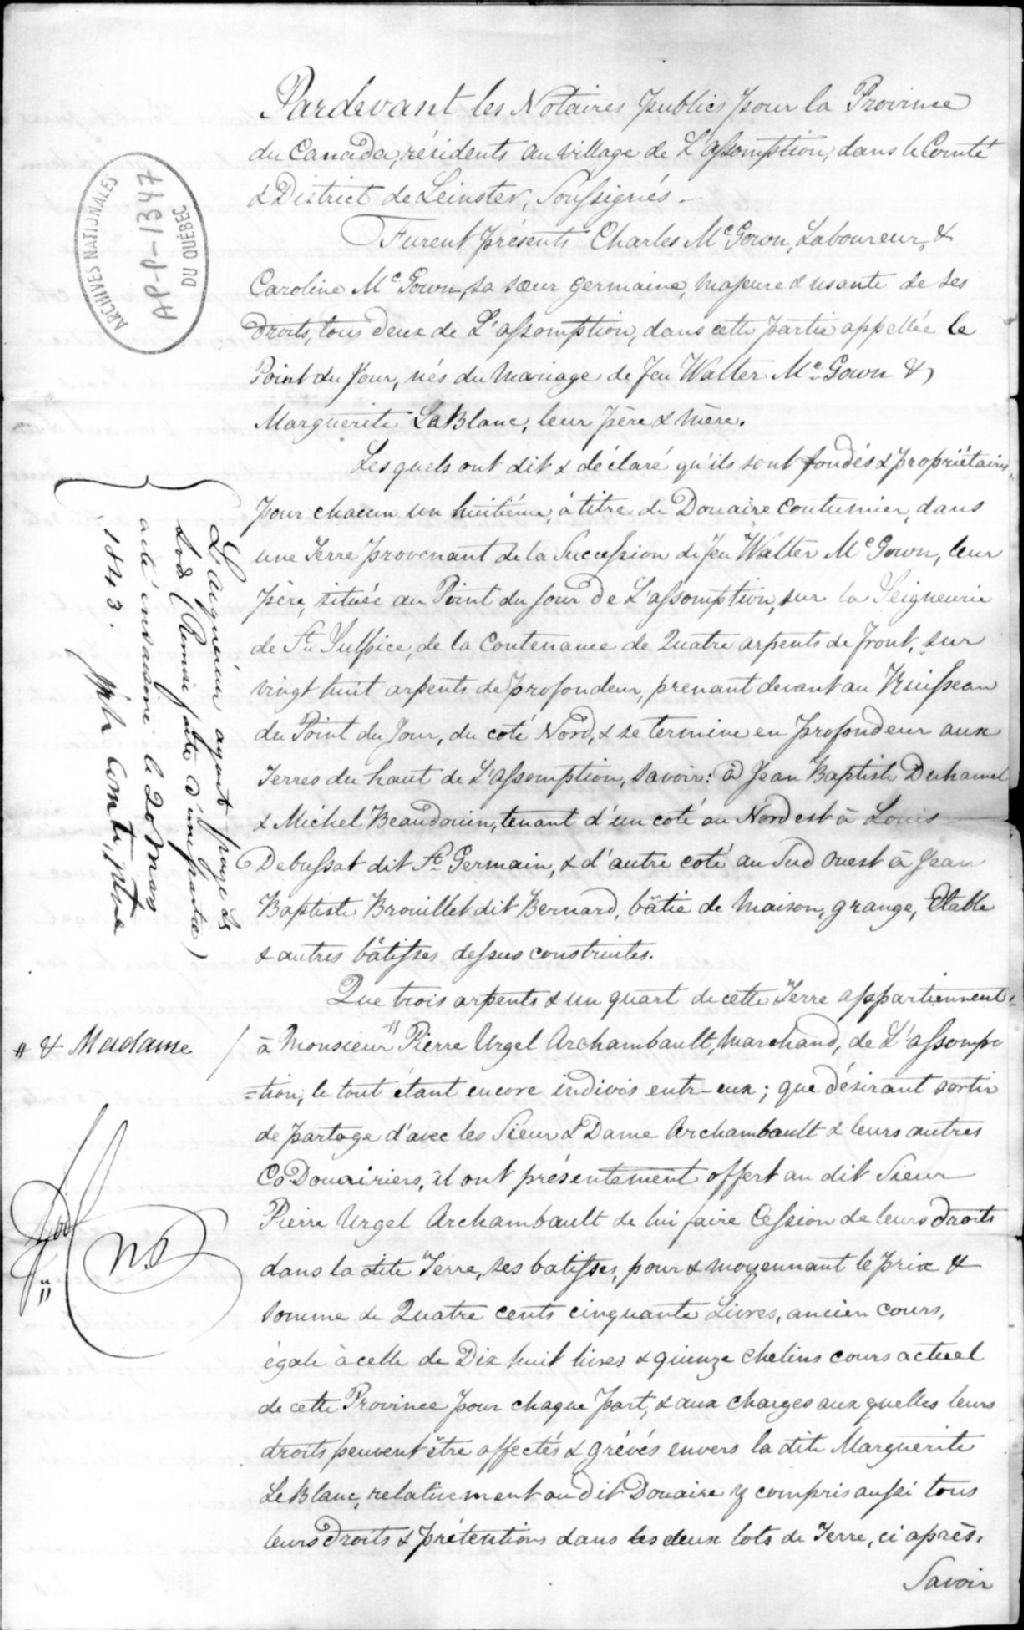 Pardevant les Notaires publics pour la Province
du Canada, résidents au village de L'assomption, dans le Comté
& District de Leinster, Soussignés.
Furent présents Charles Mc Gown, Laboureur, &
Caroline Mc Gown, sa sœur germaine, majeure & usante de ses
Droits, tous deux de L'assomption, dans cette partie appellée le
Point du Jour, nés du mariage de feu Walter Mc Gown &
Marguerite LaBlanc, leur père & mère.
Lesquels ont dit & déclaré qu'ils sont fondés & propriétaires,
pour chacun un huitième, à titre de Douaire coutumier, dans
une Terre provenant de la Succession de feu Walter Mc Gown, leur
père, située au Point du Jour de L'assomption, sur la Seigneurie
de St Sulpice, de la contenance de Quatre arpents de front, sur
vingt huit arpents de profondeur, prenant devant au Ruisseau
du Point du Jour, du coté Nord, & se termine en profondeur aux
Terres du haut de L'assomption, savoir: à Jean Baptiste Duhamel
& Michel Beaudouin, tenant d'un coté au Nord est à Louis
Debussat dit St Germain, & d'autre coté au Sud Ouest à Jean
Baptiste Brouillet dit Bernard, bâtie de maison, grange, Etable
& autres bâtisses dessus construites.
Que trois arpents & un quart de cette Terre appartiennent
à Monsieur " Pierre Urgel Archambault, Marchand, de L'assomp
=tion, le tout étant encore indivis entr-eux; que désirant sortir
de partage d'avec les Sieur & Dame Archambault & leurs autres
CoDouairiers, il ont présentement offert au dit Sieur
Pierre Urgel Archambault de lui faire Cession de leurs droits
dans la dite Terre, ses batisses, pour & moyennant le prix &
somme de Quatre cents cinquante Livres, ancien cours,
égale à celle de Dix huit livres & quinze chelins cours actuel
de cette Province pour chaque part, & aux charges aux quelles leurs
droits peuvent être affectés & grévés envers la dite Marguerite
LeBlanc, relativement au dit Douaire y compris aussi tous
leurs Droits & prétentions dans les deux lots de Terre, ci après,
Savoir
ARCHIVES NATIONALES
AP-P-1347
DU QUÉBEC
L'acquéreur ayant payé les
Lods (Remise faite d'une partie)
acté ensaisiné le 20 Mars
1843.
" & Madame /